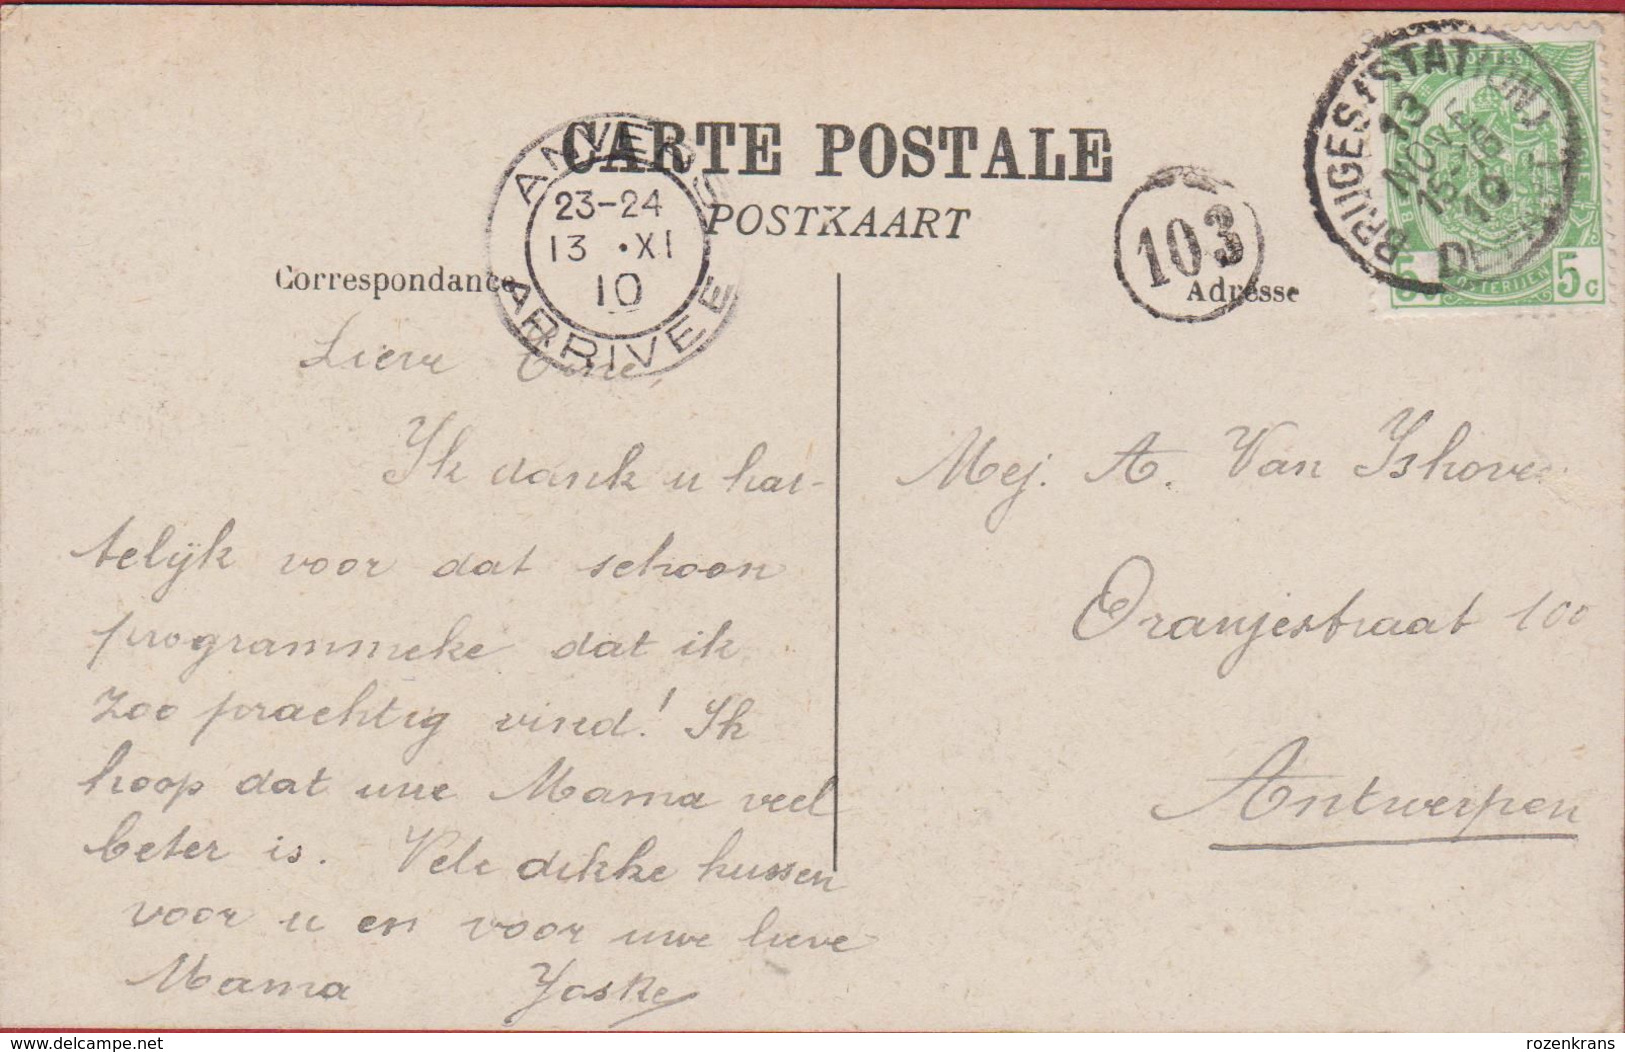 CARTE POSTALE
POSTKAART
Correspondance
Adresse
ANVERS
23-24
13 · XI
10
ARRIVEE
103
BRUGES (STATION)
13
NOVE
15-16
19
5c 5c
Lieve
Ik dank u har-
telijk voor dat schoon
programmeke dat ik
zoo prachtig vind! Ik
hoop dat uwe Mama veel
beter is. Vele dikke kussen
voor u en voor uwe lieve
Mama Joske
Mej. A. Van Ishoven
Oranjestraat 100
Antwerpen
delcampe.net
rozenkrans